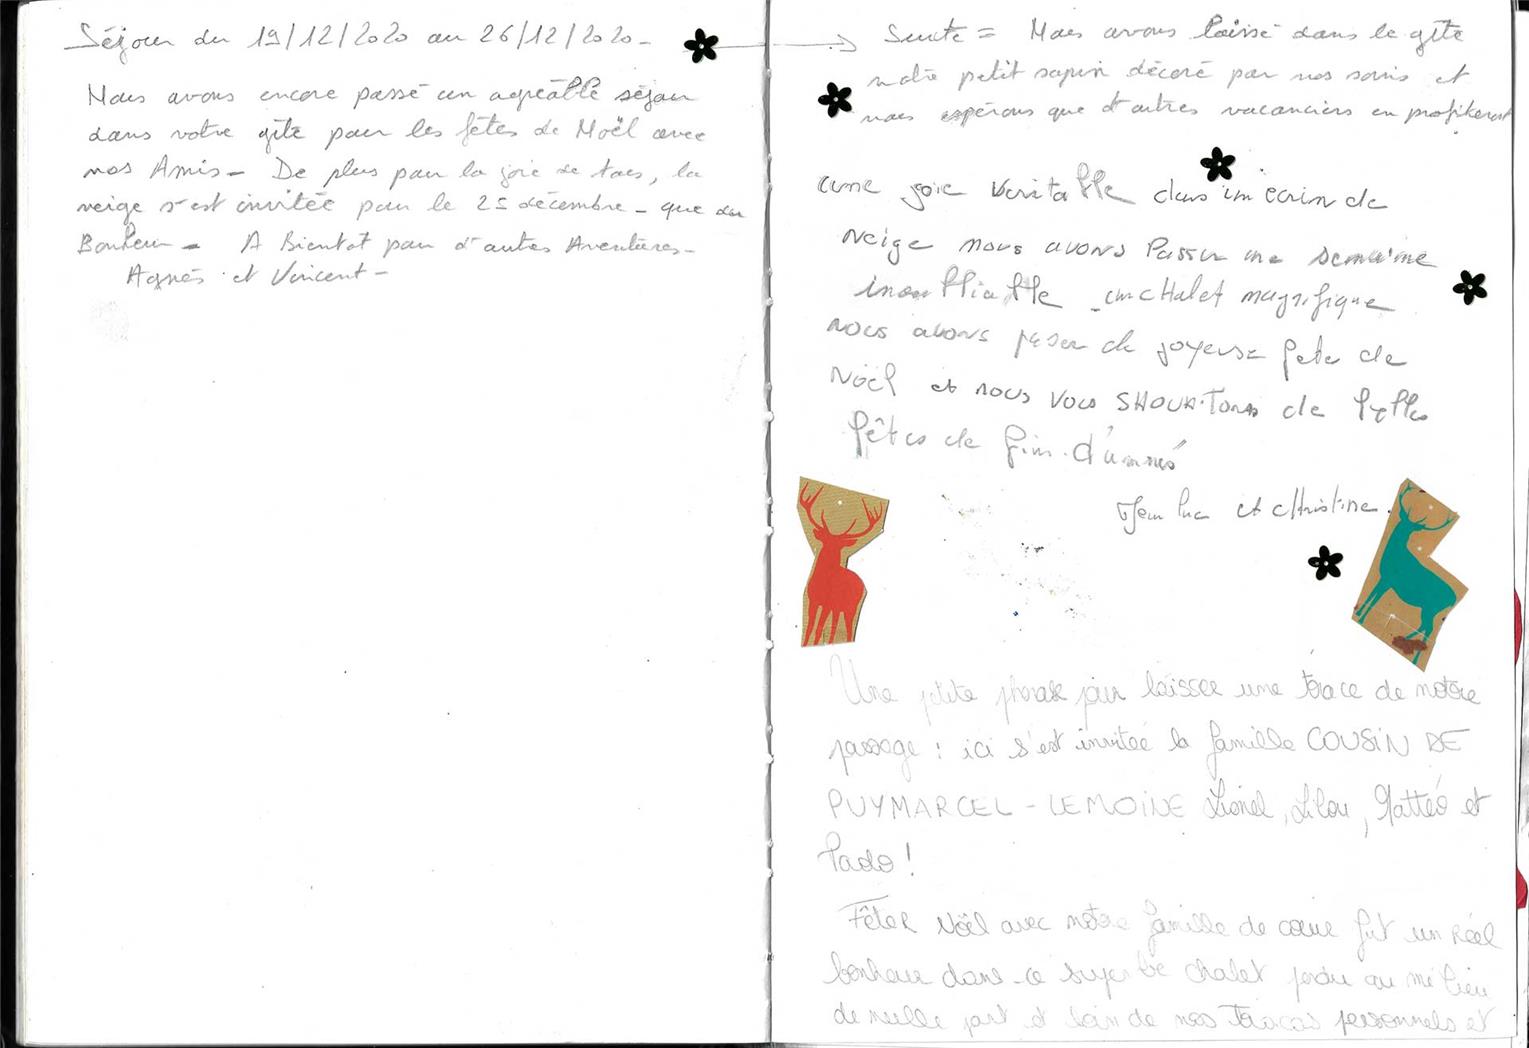 Séjour du 19/12/2020 au 26/12/2020_
Nous avons encore passé un agréable séjour
dans votre gîte pour les fêtes de Noël avec
nos Amis_ De plus pour la joie de tous, la
neige s'est invitée pour le 25 décembre_ que du
Bonheur_ A Bientot pour d'autres Aventures_
Agnès et Vincent_
Suite = Nous avons laissé dans le gîte
notre petit sapin décoré par nos soins et
nous espérons que d'autres vacanciers en profiteront
une joie veritable dans un ecrin de
Neige nous avons Passer une semaine
inoubliable un cHalet magnifique
nous avons passer de joyeuse fete de
Noël et nous vous SHOUAITONS de belles
fêtes de fin d'année
Jean luc et cHristine.
Une petite phrase pour laisser une trace de notre
passage : ici s'est invitée la famille COUSIN DE
PUYMARCEL - LEMOINE Lionel, Lilou, Mattéo et
Pado !
Fêter Noël avec notre famille de cœur fut un réel
bonheur dans ce superbe chalet perdu au milieu
de nulle part et loin de nos tracas personnels et